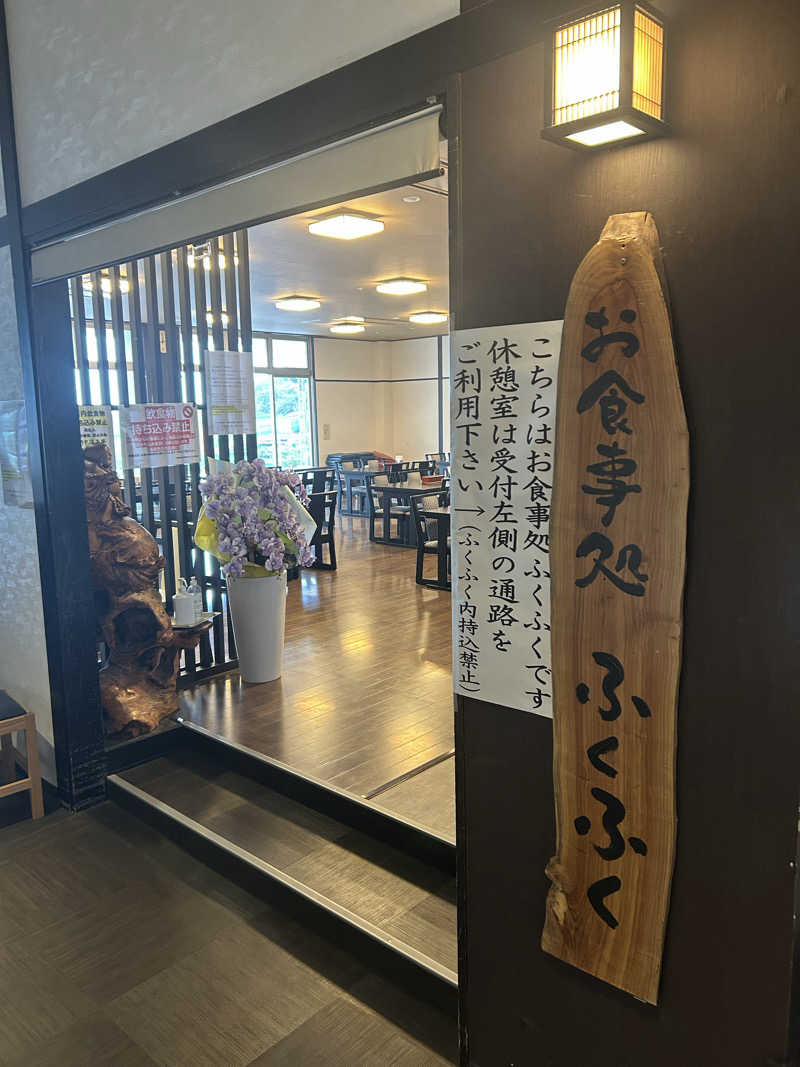 お食事処 ふくふく
こちらはお食事処ふくふくです
休憩室は受付左側の通路を
ご利用下さい→(ふくふく内持込禁止)
飲食物
持ち込み禁止